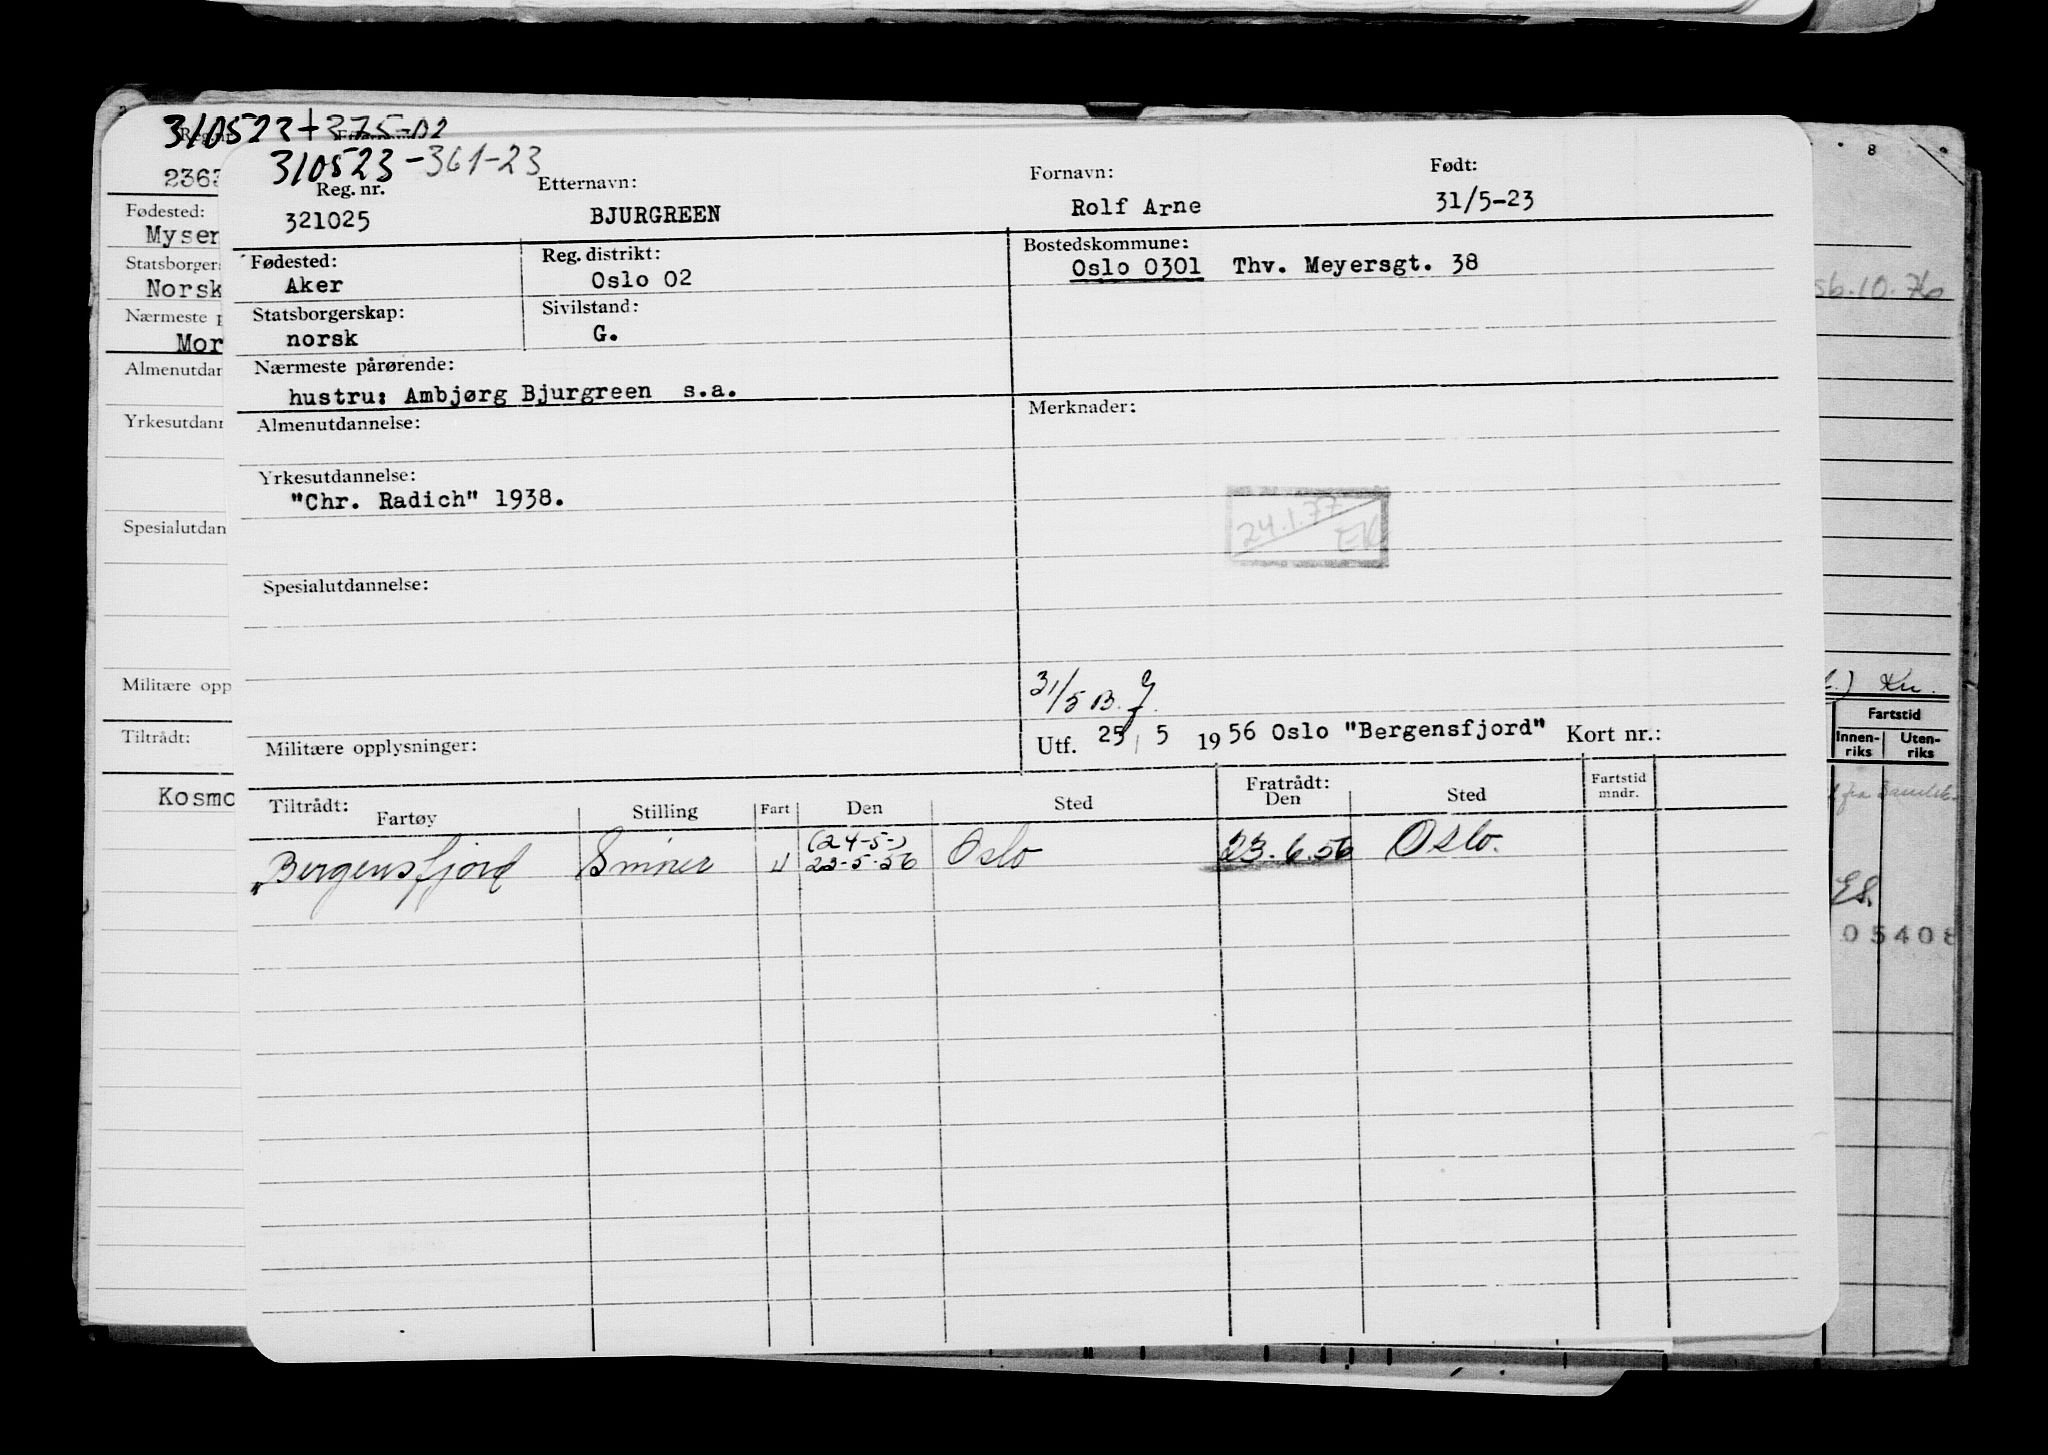 310523+375-02
310523-361-23
Reg. nr.
Etternavn:
Fornavn:
Født:
321025
BJURGREEN
Rolf Arne
31/5-23
Fødested:
Aker
Reg. distrikt:
Oslo 02
Bostedskommune:
Oslo 0301 Thv. Meyersgt. 38
Statsborgerskap:
norsk
Sivilstand:
G.
Nærmeste pårørende:
hustru: Ambjørg Bjurgreen s.a.
Almenutdannelse:
Merknader:
Yrkesutdannelse:
"Chr. Radich" 1938.
24.1.77
EK
Spesialutdannelse:
31/5 B.
Militære opplysninger:
Utf. 25 5 1956 Oslo "Bergensfjord" Kort nr.:
Tiltrådt:
Fartøy
Stilling
Fart
Den
Sted
Fratrådt:
Den
Sted
Fartstid
mndr.
Bergensfjord Smører U (24-5-) 23-5-56 Oslo 23.6.56 Oslo.
2363
Fødested:
Mysen
Statsborger
Norsk
Nærmeste p
Mor
Almenutdan
Yrkesutdann
Spesialutdan
Militære opp
Tiltrådt:
Kosmo
8
56.10.76
Kn.
Fartstid
Innen-
riks
Uten-
riks
fra
ES.
05408